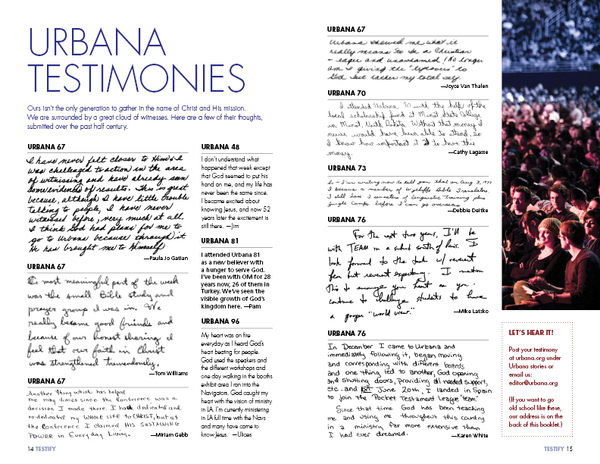 URBANA
TESTIMONIES
Ours isn't the only generation to gather in the name of Christ and His mission.
We are surrounded by a great cloud of witnesses. Here are a few of their thoughts,
submitted over the past half century.
URBANA 67
I have never felt closer to Him & I
was challenged to action in the area
of witnessing and have already seen
some evidences of results. This is great
because, although I have little trouble
talking to people, I have never
witnessed before, very much at all.
I think God had plans for me to
go to Urbana because through it
He has brought me to Himself
—Paula Jo Gatlan
URBANA 67
The most meaningful part of the week
was the small Bible study and
prayer group I was in. We
really became good friends and
because of our honest sharing I
feel that our faith in Christ
was strengthened tremendously.
—Tom Williams
URBANA 67
Another thing which has helped
me many times since the Conference was a
decision I made there. I had dedicated and
re-dedicated my WHOLE LIFE to CHRIST, but at
the Conference I claimed HIS SUSTAINING
POWER in Everyday Living.
—Miriam Gabb
URBANA 48
I don't understand
what happened that week except
that God seemed to put his
hand on me, and my life has
never been the same since.
I became excited about
knowing Jesus, and now 52
years later the excitement is
still there. —Jim
URBANA 81
I attended Urbana 81
as a new believer with
a hunger to serve God.
I've been with OM for 28
years now, 26 of them in
Turkey. We've seen the
visible growth of God's
kingdom here. —Pam
URBANA 96
My heart was on fire
everyday as I heard God's
heart beating for people.
God used the speakers and
the different workshops and
one day walking in the booths
exhibit area I ran into the
Navigators. God caught my
heart with the vision of ministry
in LA. I'm currently ministering
in LA full time with the Navs
and many have come to
know Jesus. —Ulises
14 TESTIFY
URBANA 67
Urbana showed me what it
really means to be a Christian
- eager and unashamed! No longer
am I giving the "leftovers" to
God but rather my total self.
—Joyce Van Thalen
URBANA 70
I attended Urbana 70 with the help of the
local scholarship fund at Minot State College
in Minot, North Dakota. Without that money I
never would have been able to attend. So
I know how important it is to have this
money.
—Cathy Lagasse
URBANA 73
I'm writing now to tell you that on Aug
I became a member of Wycliffe Bible Translators
I still have 2 semesters of Linguistic Training plus
Jungle Camp before I can go overseas.
—Debbie Dortke
URBANA 76
For the next two years, I'll be
with TEAM in a school south of Paris. I
look forward to the task w/ reverent
fear but versant expectancy. I mention
this to encourage you
continue to challenge students to have
a proper "world view."
—Mike Latsko
URBANA 76
In December I came to Urbana and
immediately following it, began moving
and corresponding with different boards
and one thing led to another, God opening
and shutting doors, providing all needed support,
etc. and June 20th, I landed in Spain
to join the Pocket Testament League team!
Since that time God has been teaching
me and using me throughout this country
in a ministry far more extensive than
I had ever dreamed.
—Karen White
LET'S HEAR IT!
Post your testimony
at urbana.org under
Urbana stories or
email us:
editor@urbana.org
(If you want to go
old school like these,
our address is on the
back of this booklet.)
TESTIFY 15